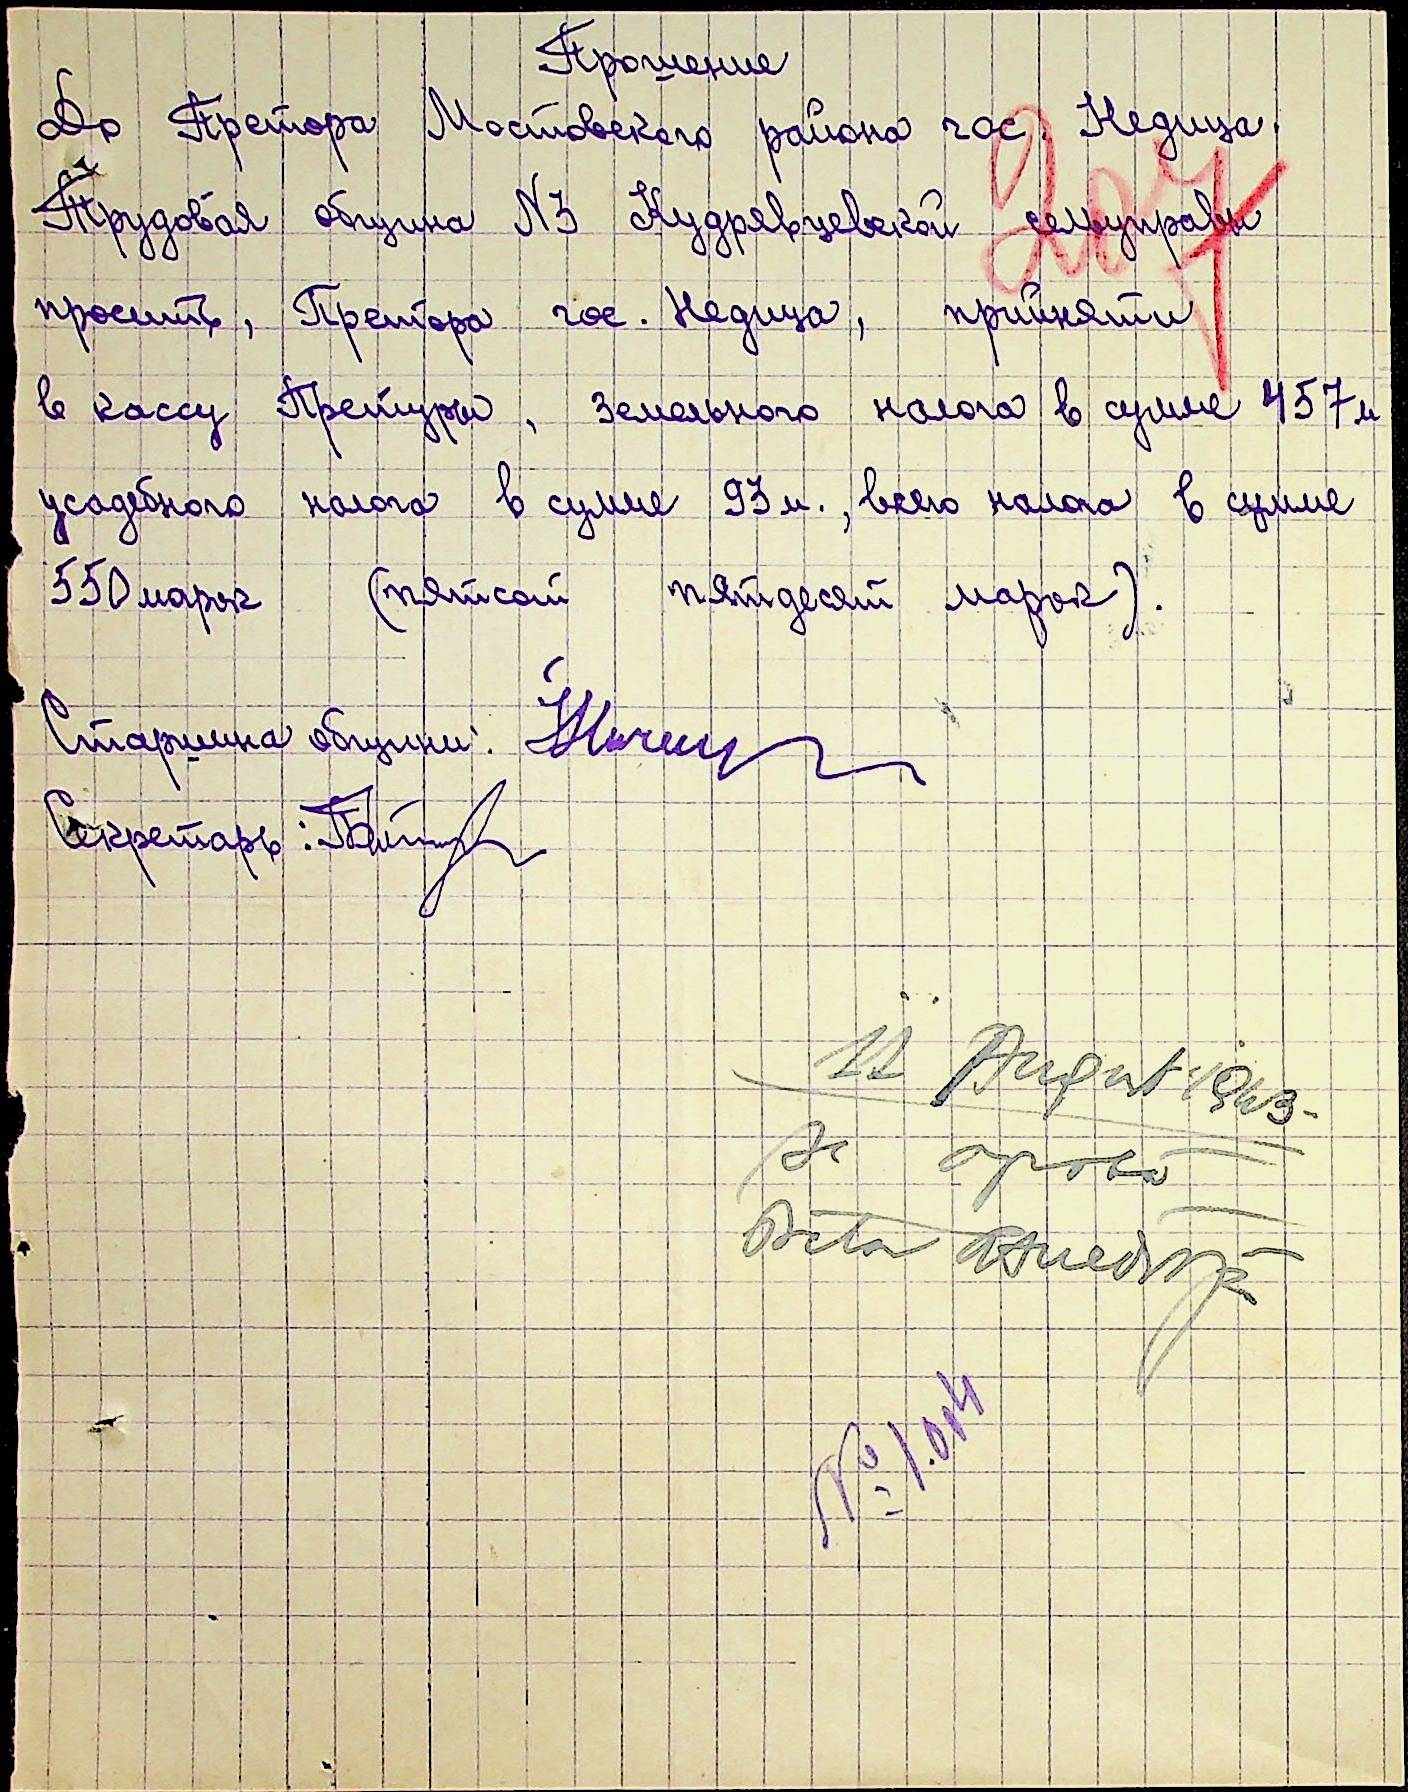 Прошение
До Претора Мостовского района гос. Недица.
207
Трудовая община N3 Кудрявцевской сельуправы
просить, Претора гос. Недица, прийняти
в кассу Претуры, земельного налога в сумме 457 м
усадебного налога в сумме 93 м., всего налога в сумме
550 марок (пятсот пятдесят марок).
Старшина общини:
Секретарь:
11 August 1943
Se aproba
№ 1.014